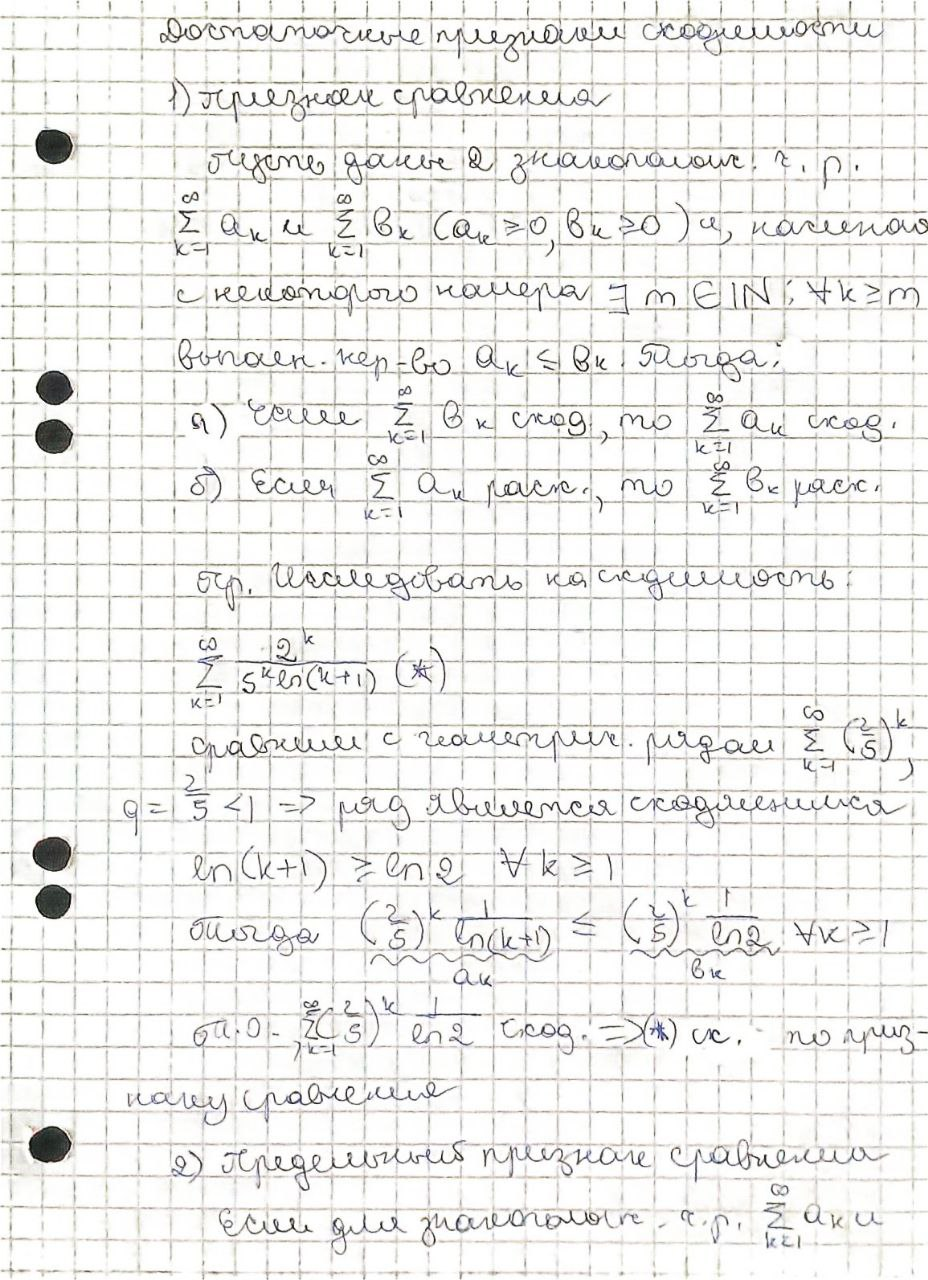 Достаточные признаки сходимости
1) Признак сравнения
Пусть даны 2 знакополож. ч. р.
∞∑k=1 aₖ и ∞∑k=1 bₖ (aₖ ≥ 0, bₖ ≥ 0) и, начиная
с некоторого номера ∃ m ∈ ℕ: ∀k ≥ m
выполн. нер-во aₖ ≤ bₖ. Тогда:
а) Если ∞∑k=1 bₖ сход, то ∞∑k=1 aₖ сход.
б) Если ∞∑k=1 aₖ расх., то ∞∑k=1 bₖ расх.
Пр. Исследовать на сходимость:
∞∑k=1 2ᵏ/(5ᵏ ln(k+1)) (*)
Сравним с геометрич. рядом ∞∑k=1 (2/5)ᵏ,
q = 2/5 < 1 => ряд является сходящимся
ln(k+1) ≥ ln2 ∀ k ≥ 1
Тогда (2/5)ᵏ 1/ln(k+1) ≤ (2/5)ᵏ 1/ln2 ∀k ≥ 1
aₖ bₖ
Т.о., ∞∑k=1 (2/5)ᵏ 1/ln2 сход. => (*) сх. по приз-
наку сравнения
2) Предельный признак сравнения
Если для знакополож. ч.р. ∞∑k=1 aₖ и